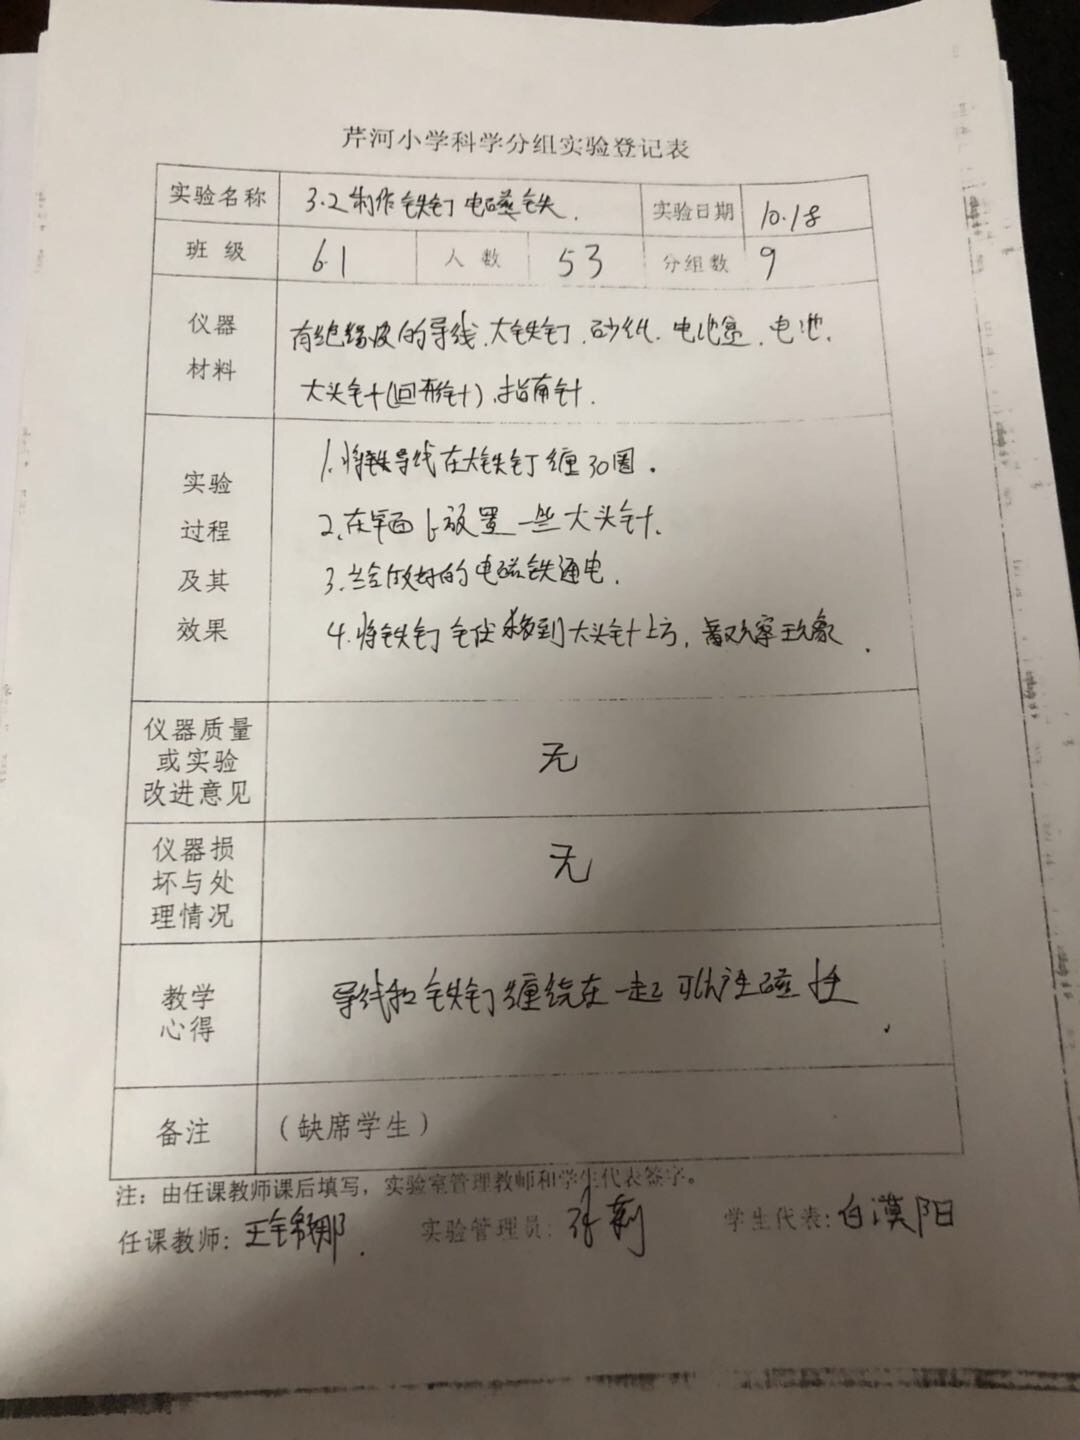 芹河小学科学分组实验登记表
实验名称 3.2制作铁钉电磁铁. 实验日期 10.18
班级 6.1 人数 53 分组数 9
仪器 有绝缘皮的导线、大铁钉、砂纸、电池盒、电池、
材料 大头针(回形针)、指南针.
实验 1.将导线在大铁钉缠30圈.
过程 2.在桌面上放置一些大头针.
及其 3.给做好的电磁铁通电.
效果 4.将铁钉 移到大头针上方, 观察现象.
仪器质量
或实验
改进意见
无
仪器损
坏与处
理情况
无
教学
心得
导线和铁钉缠绕在一起可以产生磁性.
备注 (缺席学生)
注:由任课教师课后填写,实验室管理教师和学生代表签字。
任课教师:王锦娜. 实验管理员:张莉 学生代表:白漠阳